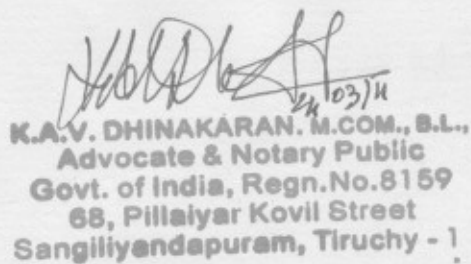 24/03/11
K.A.V. DHINAKARAN. M.COM., B.L.,
Advocate & Notary Public
Govt. of India, Regn.No.8159
68, Pillaiyar Kovil Street
Sangiliyandapuram, Tiruchy - 1